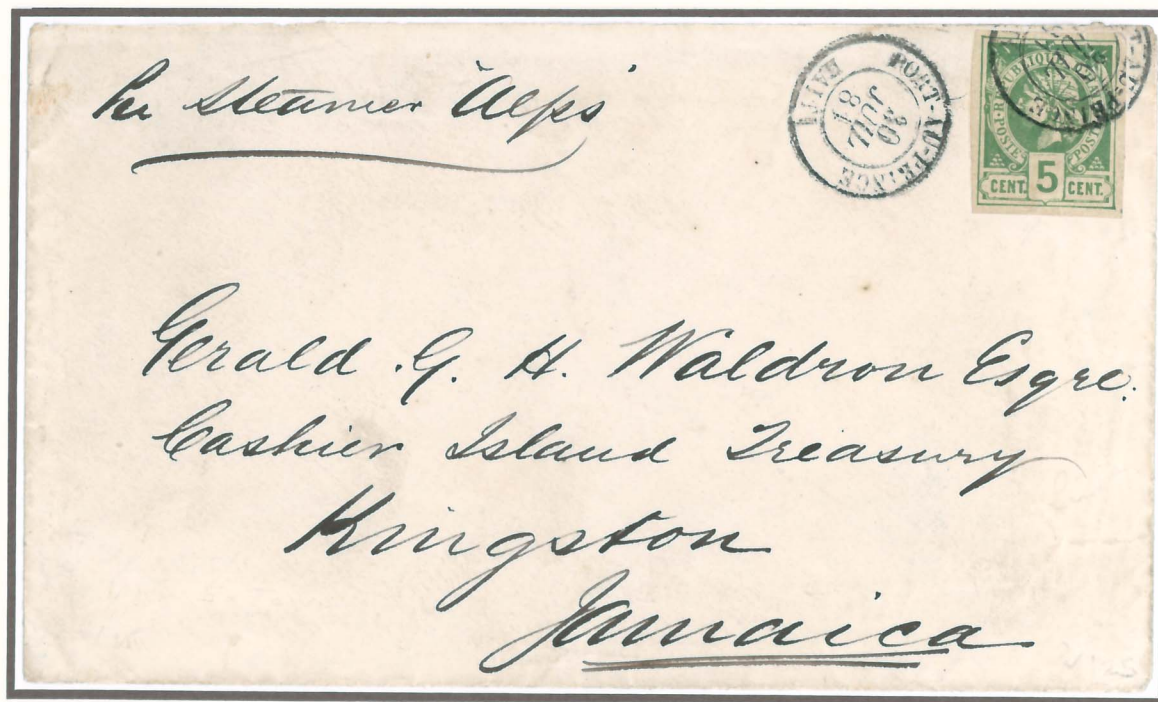 Per Steamer "Alps"
PORT-AU-PRINCE
HAITI
30
JUIL
81
POSTE
POSTE
CENT. 5 CENT.
Gerald. G. H. Waldron Esqre.
Cashier Island Treasury
Kingston
Jamaica